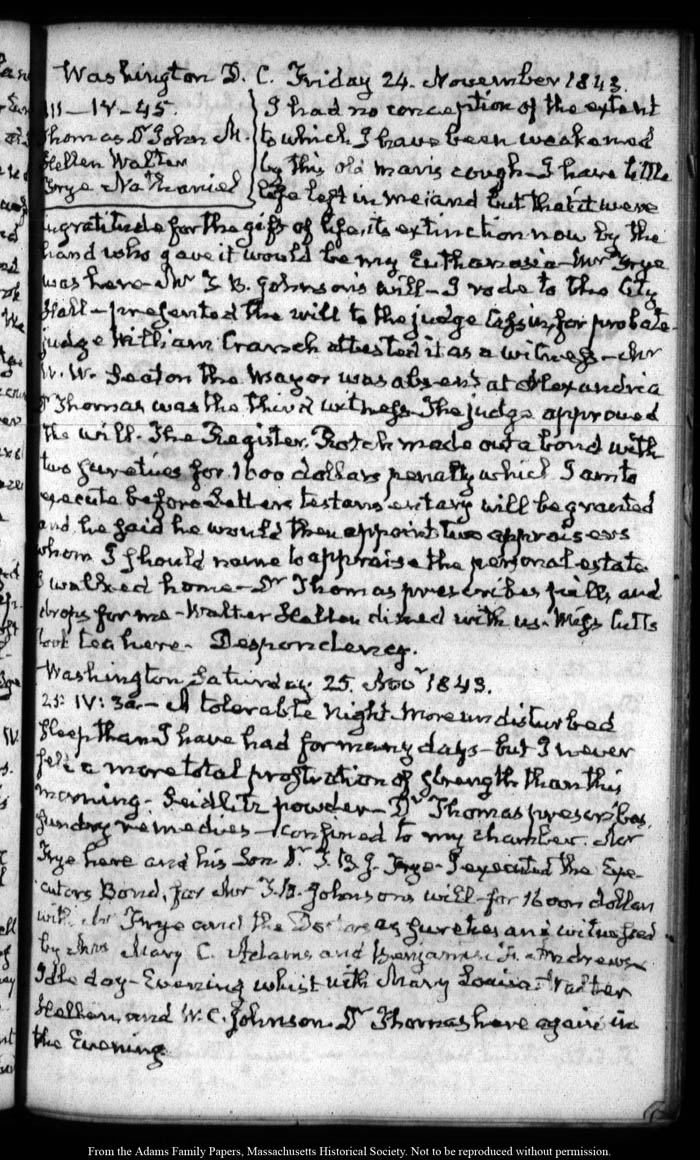 Washington D. C. Friday 24. November 1843.
III—IV—45.
Thomas Dr John M.
Hellen Walter
Frye Nathaniel
I had no conception of the extent
to which I have been weakened
by this old man's cough—I have little
life left in me; and but that it were
ingratitude for the gift of life, its extinction now by the
hand who gave it would be my Euthanasia—Mr Frye
was here—Mr T. B. Johnson's will—I rode to the City
Hall—presented the will to the judge for probate—
judge William Cranch attested it as a witness—Mr
W. W. Seaton the Mayor was absent at Alexandria
Dr Thomas was the third witness. The judge approved
the will. The Register, Rotch made out a bond with
two sureties for 1600 dollars penalty which I am to
execute before Letters testamentary will be granted
and he said he would then appoint two appraisers
whom I should name to appraise the personal estate
I walked home—Dr Thomas prescribes pills and
drops for me—Walter Hellen dined with us. Miss Cutts
took tea here. Despondency.
Washington Saturday 25. Novr 1843.
25: IV: 30.—A tolerable night. More undisturbed
sleep than I have had for many days—but I never
felt a more total prostration of strength than this
morning. Seidlitz powder—Dr Thomas prescribes
sundry remedies—confined to my chamber. Mr
Frye here and his Son Dr T. B. J. Frye. I executed the Exe-
cutors Bond, for Mr T. B. Johnson's will—for 1600 dollars
with Mr Frye and the Doctor as sureties and witnessed
by Mrs Mary C. Adams and Benjamin Andrews
Idle day—Evening whist with Mary Louisa, Walter
Hellen, and W. C. Johnson. Dr Thomas here again in
the Evening
From the Adams Family Papers, Massachusetts Historical Society. Not to be reproduced without permission.